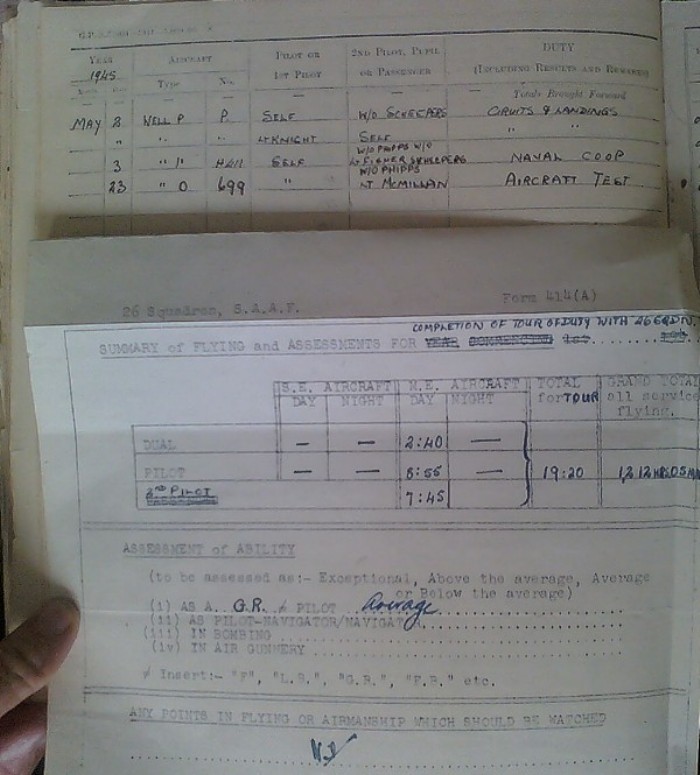 YEAR AIRCRAFT PILOT OR 2ND PILOT, PUPIL DUTY
1945 Type No. 1ST PILOT OR PASSENGER (INCLUDING RESULTS AND REMARKS)
— — — — — Totals Brought Forward
MAY 2 WELL P P. SELF W/O SCHEEPERS CIRCUITS & LANDINGS
" " " LT KNIGHT SELF " "
W/O PHIPPS W/O
3 " " SELF LT FISHER SCHEEPERS NAVAL COOP
W/O PHIPPS
23 " O 699 " LT MCMILLAN AIRCRAFT TEST
26 Squadron, S.A.A.F. Form 414(A)
COMPLETION OF TOUR OF DUTY WITH 26 SQDN.
SUMMARY of FLYING and ASSESSMENTS FOR YEAR COMMENCING 1st
S.E. AIRCRAFT M.E. AIRCRAFT TOTAL GRAND TOTAL
DAY NIGHT DAY NIGHT for TOUR all service
flying.
DUAL — — 2:40 —
PILOT — — 8:55 — 19:20 1212
2ND PILOT 7:45
ASSESSMENT of ABILITY
(to be assessed as:- Exceptional, Above the average, Average
or Below the average)
(i) AS A.. G.R. ≠ PILOT Average
(ii) AS PILOT-NAVIGATOR/NAVIGATOR
(iii) IN BOMBING
(iv) IN AIR GUNNERY
≠ Insert:- "F", "L.B.", "G.R.", "F.B." etc.
ANY POINTS IN FLYING OR AIRMANSHIP WHICH SHOULD BE WATCHED